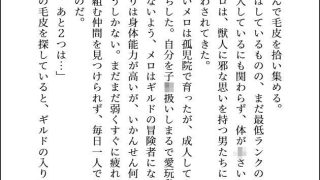 んで毛皮を拾い集める。
はしているものの、まだ最低ランクの
人しているにも関わらず、体がさい
ロは、獣人に邪な思いを持つ男たちに
わされてきた。
いメロは孤児院で育ったが、成人して
らした。自分を子扱いしまるで愛玩
ないよう、メロはギルドの冒険者にな
は身体能力が高いが、いかんせん何
うしかない。まだまだ弱くすぐに疲れ
組む仲間を見つけられず、毎日一人で
のだ。
あと２つは…」
の毛皮を探していると、ギルドの入り